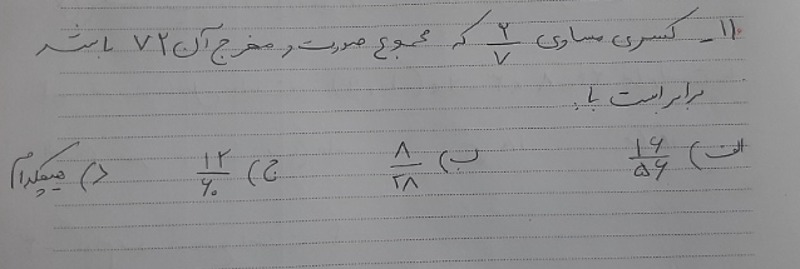 ۱۱- کسری مساوی ۲/۷ که مجموع صورت و مخرج آن ۷۲ باشد
برابر است با:
الف) ۱۶/۵۶ ب) ۸/۲۸ ج) ۱۲/۶۰ د) هیچکدام